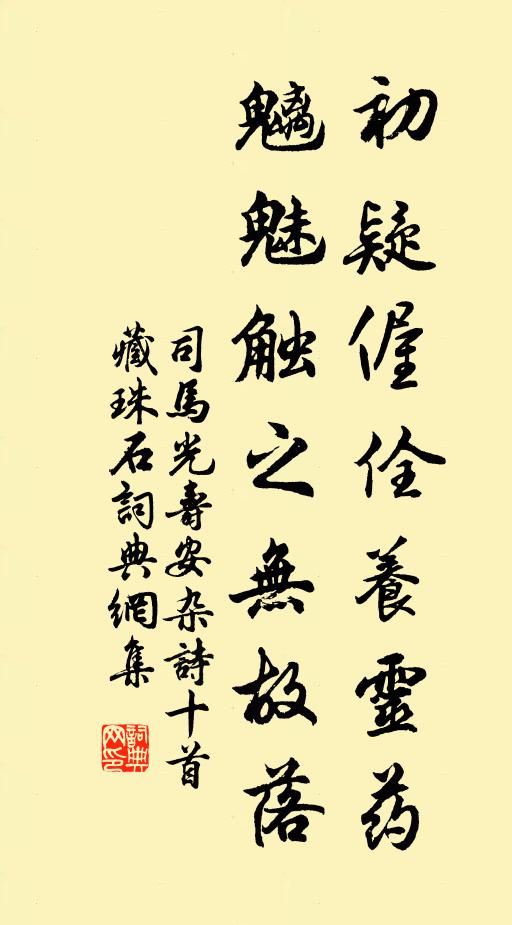 初疑偓佺養靈药
魑魅触之無故落
司馬光壽安杂詩十首
藏珠石詞典網集
詞典网印